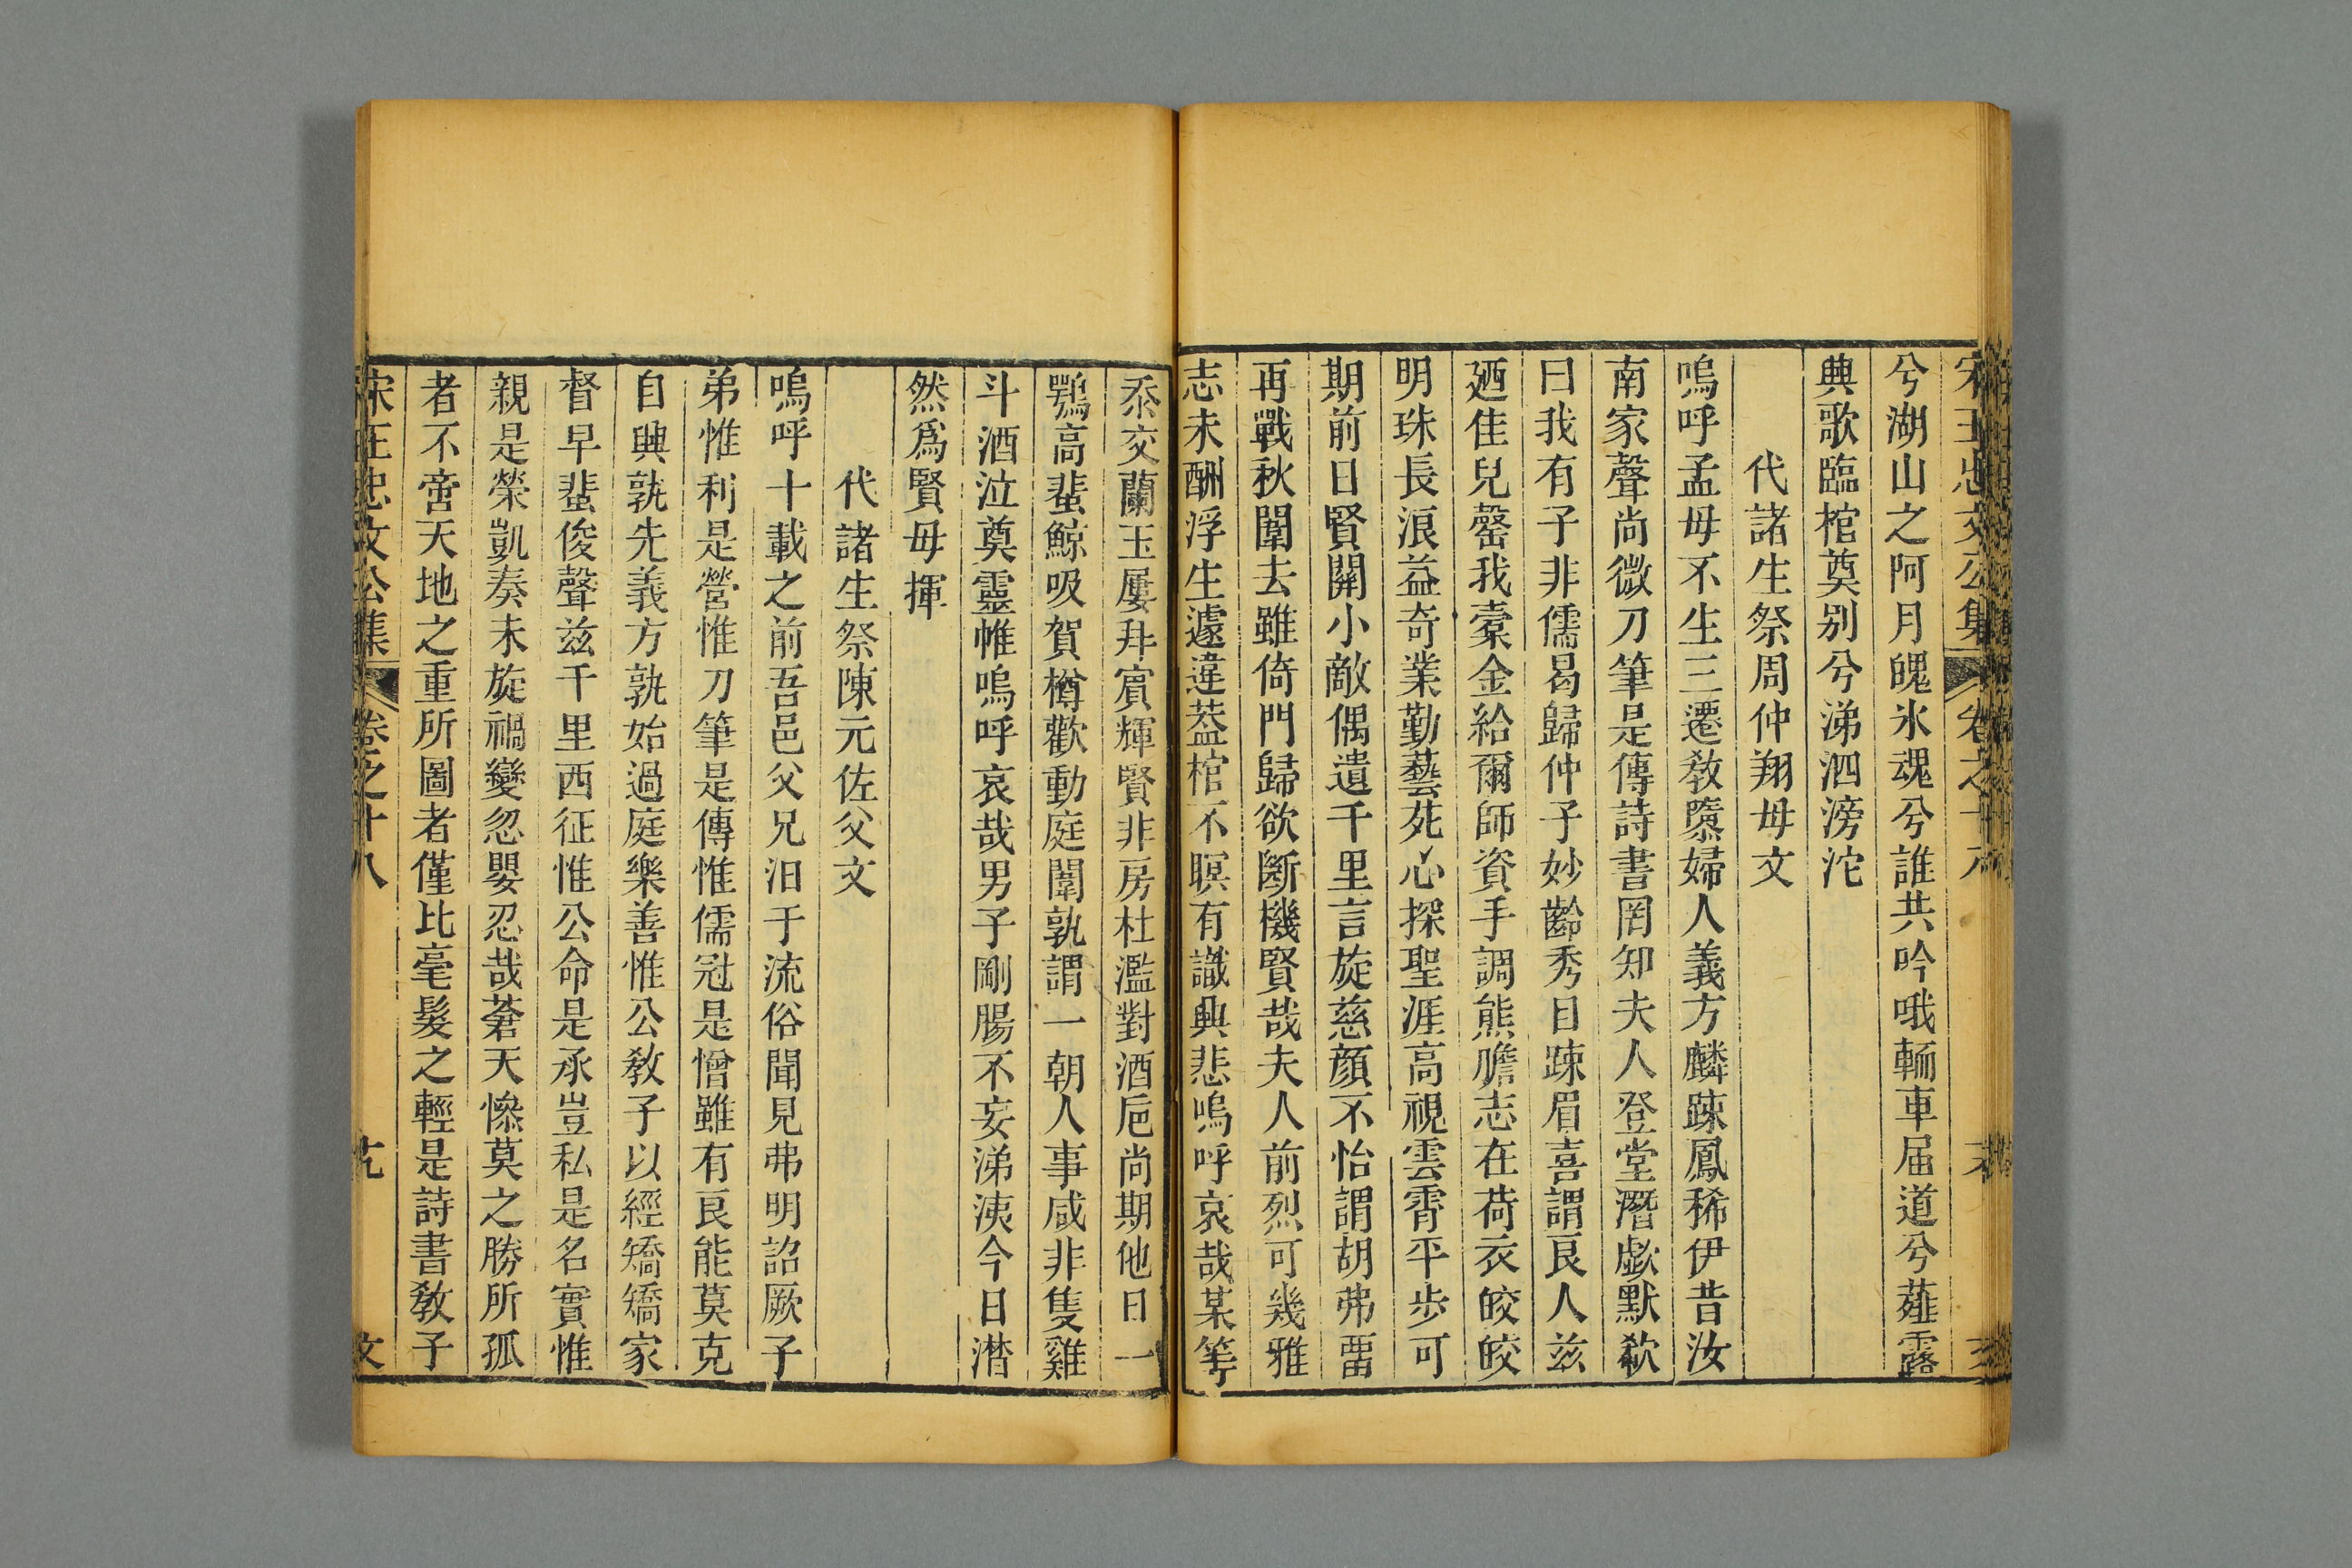 宋王忠文公集 卷之十八
兮湖山之阿月魄氷魂兮誰共吟哦輀車届道兮薤露
興歌臨棺奠别兮涕泗滂沱
代諸生祭周仲翔母文
嗚呼孟母不生三遷敎隳婦人義方麟踈鳳稀伊昔汝
南家聲尚微刀筆是傳詩書罔知夫人登堂潛歔默欷
曰我有子非儒曷歸仲子妙齡秀目踈眉喜謂良人兹
廼佳兒罄我槖金給爾師資手調熊膽志在荷衣皎皎
明珠長浪益奇業勤藝苑心探聖涯高視雲霄平步可
期前日賢關小敵偶遺千里言旋慈顔不怡謂胡弗畱
再戰秋闈去雖倚門歸欲斷機賢哉夫人前烈可幾雅
志未酬浮生遽違葢棺不瞑有識興悲嗚呼哀哉某等
忝交蘭玉屢拜賓輝賢非房杜濫對酒巵尚期他日一
鶚高蜚鯨吸賀樽歡動庭闈孰謂一朝人事咸非隻雞
斗酒泣奠靈帷嗚呼哀哉男子剛腸不妄涕洟今日潸
然爲賢母揮
代諸生祭陳元佐父文
嗚呼十載之前吾邑父兄汨于流俗聞見弗明詔厥子
弟惟利是營惟刀筆是傳惟儒冠是憎雖有良能莫克
自興孰先義方孰始過庭樂善惟公敎子以經矯矯家
督早蜚俊聲兹千里西征惟公命是承豈私是名實惟
親是榮凱奏未旋禍變忽嬰忍哉蒼天慘莫之勝所孤
者不啻天地之重所圖者僅比毫髮之輕是詩書敎子
宋王忠文公集 卷之十八 文